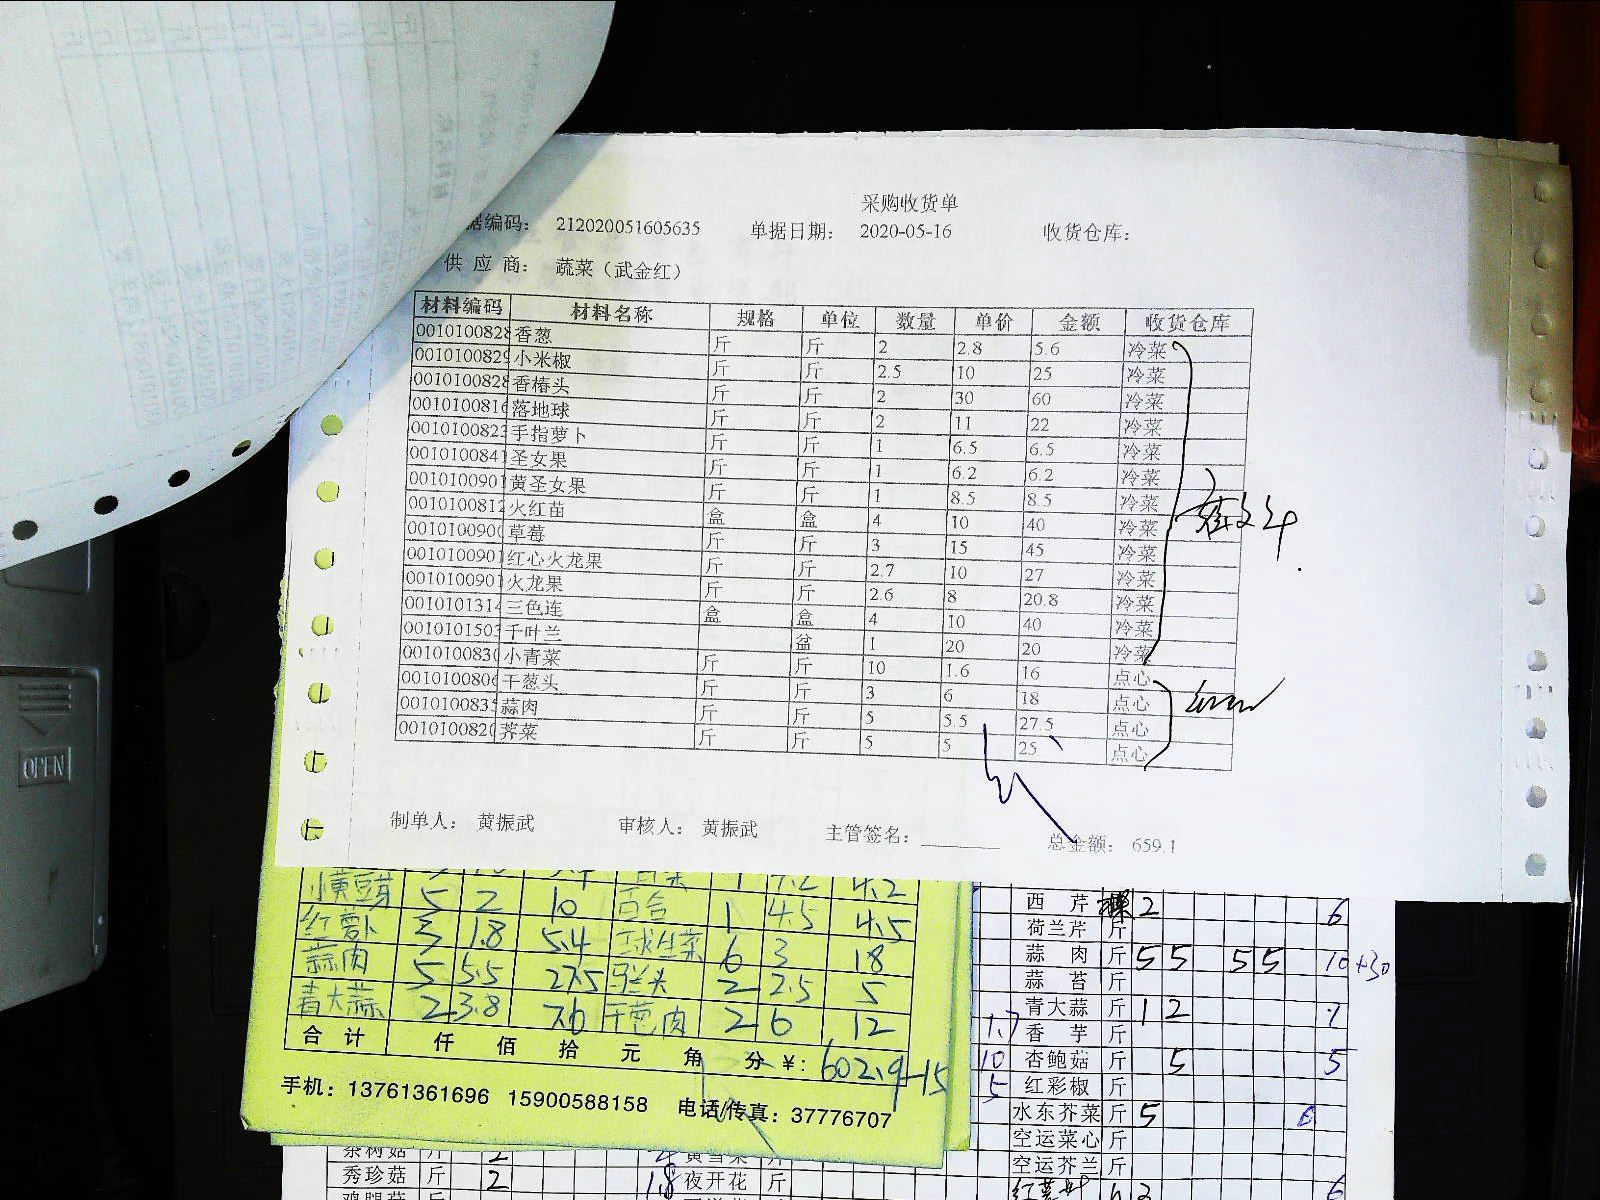 采购收货单
据编码： 212020051605635 单据日期： 2020-05-16 收货仓库：
供 应 商： 蔬菜（武金红）
材料编码 材料名称 规格 单位 数量 单价 金额 收货仓库
0010100828 香葱 斤 斤 2 2.8 5.6 冷菜
0010100829 小米椒 斤 斤 2.5 10 25 冷菜
0010100828 香椿头 斤 斤 2 30 60 冷菜
0010100816 落地球 斤 斤 2 11 22 冷菜
0010100823 手指萝卜 斤 斤 1 6.5 6.5 冷菜
0010100841 圣女果 斤 斤 1 6.2 6.2 冷菜
0010100901 黄圣女果 斤 斤 1 8.5 8.5 冷菜
0010100812 火红苗 盒 盒 4 10 40 冷菜
0010100900 草莓 斤 斤 3 15 45 冷菜
0010100901 红心火龙果 斤 斤 2.7 10 27 冷菜
0010100901 火龙果 斤 斤 2.6 8 20.8 冷菜
0010101314 三色连 盒 盒 4 10 40 冷菜
0010101503 千叶兰 盆 1 20 20 冷菜
0010100830 小青菜 斤 斤 10 1.6 16 点心
0010100806 干葱头 斤 斤 3 6 18 点心
0010100835 蒜肉 斤 斤 5 5.5 27.5 点心
0010100820 荠菜 斤 斤 5 5 25 点心
制单人： 黄振武 审核人： 黄振武 主管签名： 总金额： 659.1
OPEN
小黄豆芽 5 2 10 百合 1 4.5 4.5
红萝卜 3 1.8 5.4 球生菜 6 3 18
蒜肉 5 5.5 27.5 马兰头 2 2.5 5
青大蒜 2 3.8 7.6 干葱肉 2 6 12
合 计 仟 佰 拾 元 角 分 ¥: 602.9-15
手机：13761361696 15900588158 电话/传真：37776707
西 芹 2 6
荷兰芹 斤
蒜 肉 斤 5 5 5 5 10+30
蒜 苔 斤
青大蒜 斤 1 2
1.7 香 芋 斤
10 杏鲍菇 斤 5 5
5 红彩椒 斤
水东芥菜 斤 5 6
空运菜心 斤
空运芥兰 斤
茶树菇 斤 2
秀珍菇 斤 2 1.8 夜开花 斤